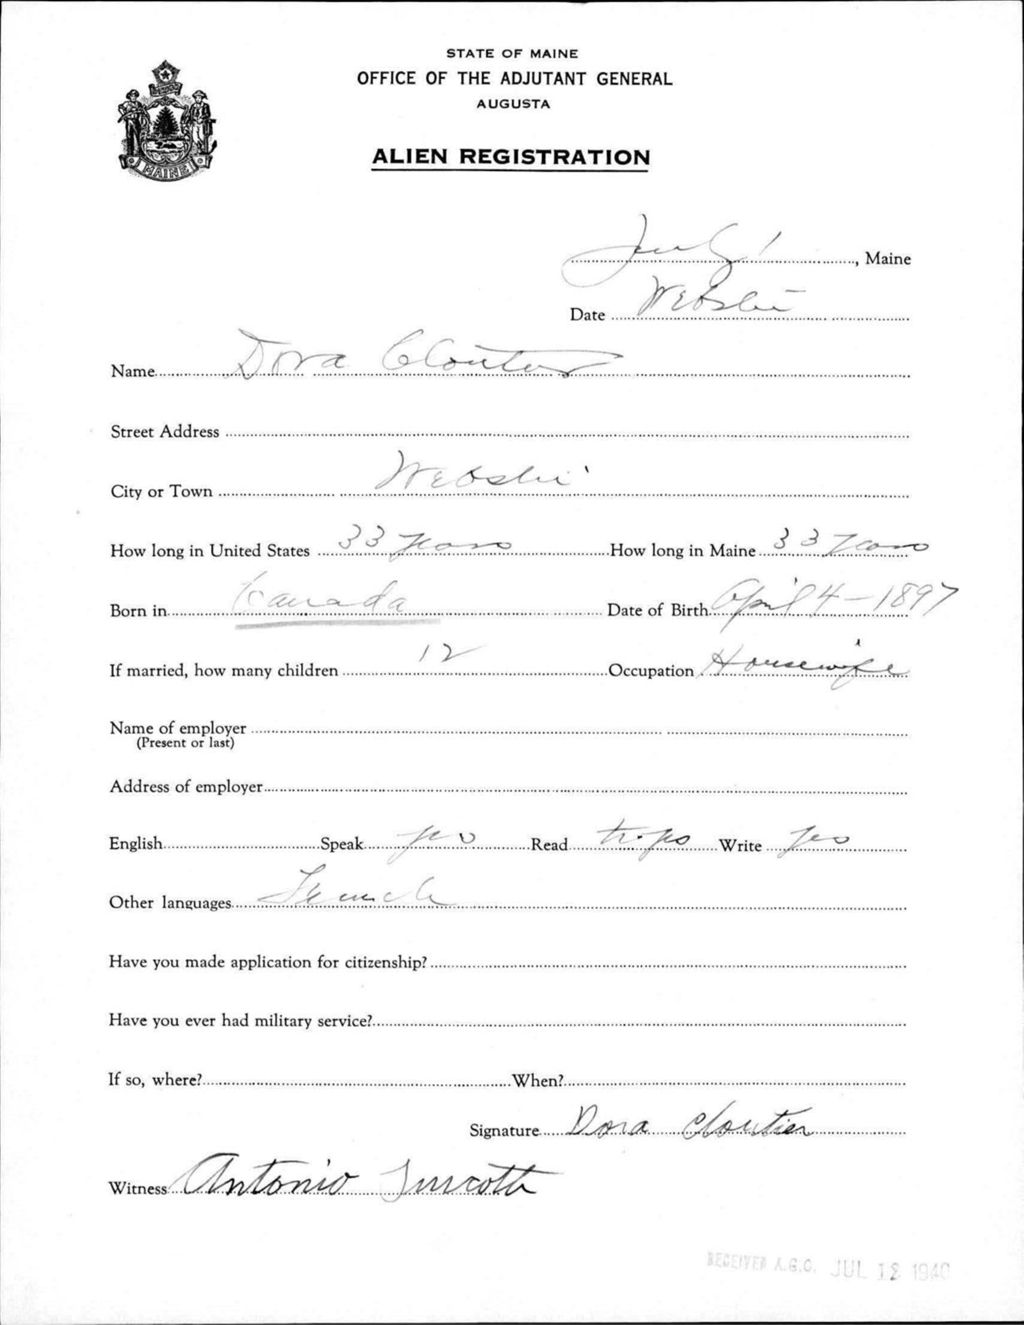 STATE OF MAINE
OFFICE OF THE ADJUTANT GENERAL
AUGUSTA
ALIEN REGISTRATION
MAINE
July 1, Maine
Date Webster
Name Dora Cloutier
Street Address
City or Town Webster
How long in United States 33 years How long in Maine 33 years
Born in Canada Date of Birth April 4 - 1897
If married, how many children 12 Occupation Housewife
Name of employer
(Present or last)
Address of employer
English Speak yes Read yes Write yes
Other languages French
Have you made application for citizenship?
Have you ever had military service?
If so, where? When?
Signature Dora Cloutier
Witness Antonio Turcotte
RECEIVED A.G.O. JUL 12 1940